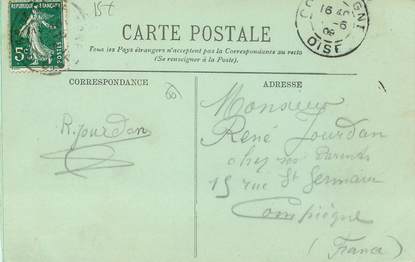 15 €
REPUBLIQUE FRANÇAISE
5c
POSTES
16
6
OISE
CARTE POSTALE
Tous les Pays étrangers n'acceptent pas la Correspondance au recto
(Se renseigner à la Poste).
CORRESPONDANCE
ADRESSE
60
R. Jourdan
Monsieur
René Jourdan
chez ses Parents
15 rue St Germain
Compiègne
(France)